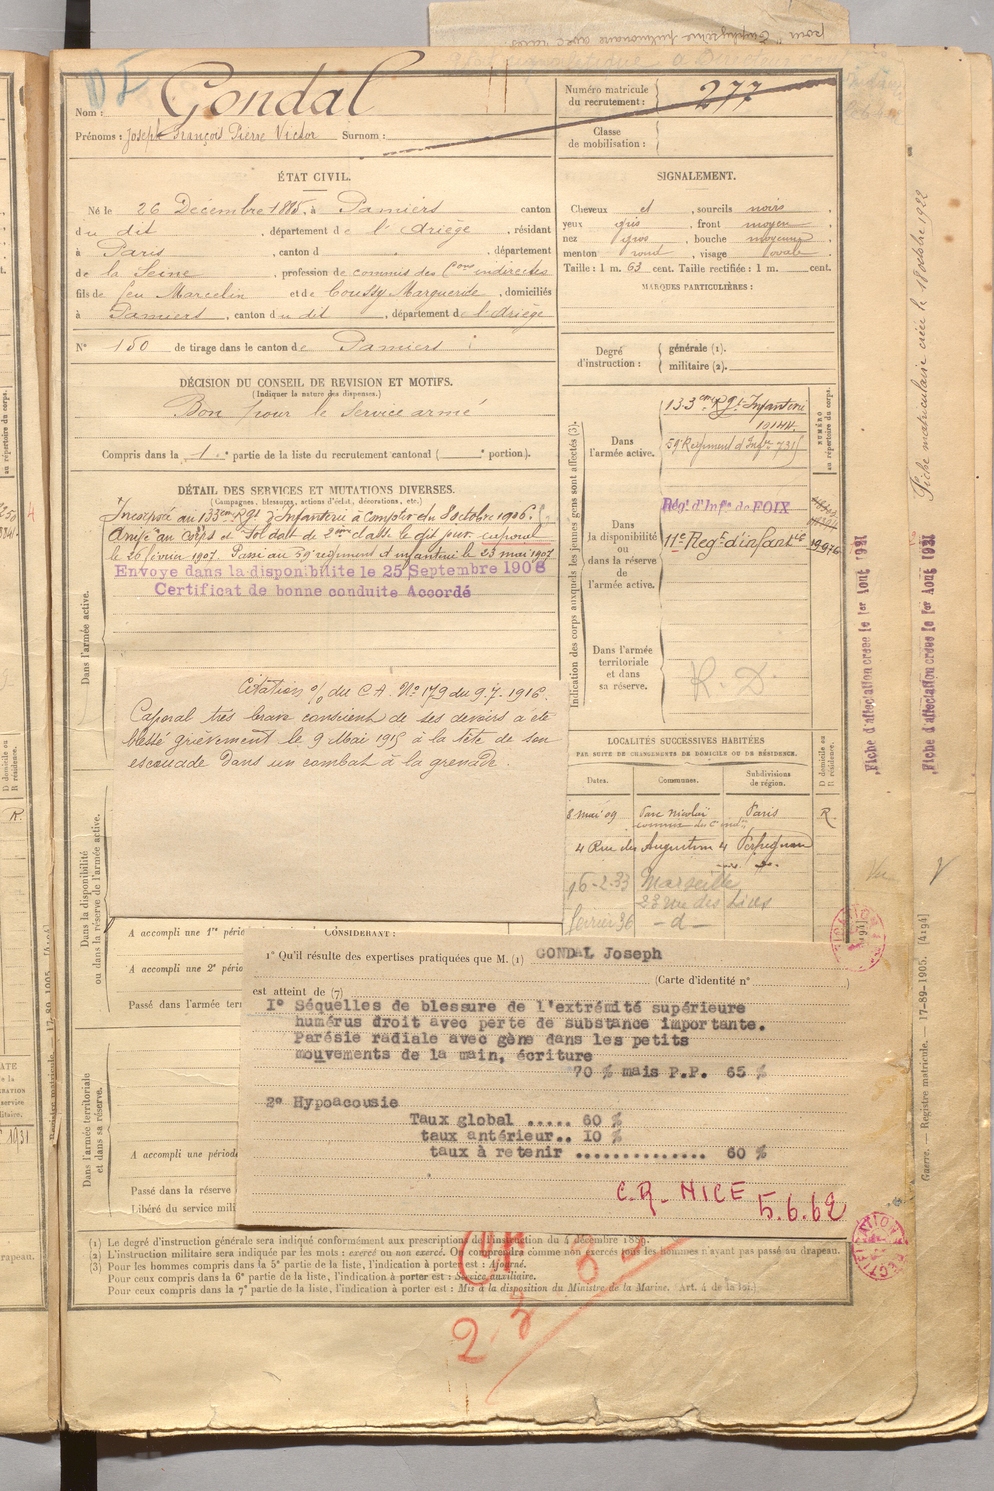 Gondal
Nom :
Prénoms : Joseph François Pierre Victor Surnom :
Numéro matricule du recrutement : 277
Classe de mobilisation :
ÉTAT CIVIL.
Né le 26 Décembre 1885, à Pamiers canton
du dit , département de l'Ariège , résidant
à Paris , canton d , département
de la Seine , profession de commis des Cons indirectes
fils de feu Marcelin et de Coussy Marguerite , domiciliés
à Pamiers , canton du dit , département de l'Ariège
N° 150 de tirage dans le canton de Pamiers
SIGNALEMENT.
Cheveux et , sourcils noirs
yeux gris , front moyen
nez gros , bouche moyenne
menton rond , visage ovale
Taille : 1 m. 63 cent. Taille rectifiée : 1 m. cent.
MARQUES PARTICULIÈRES :
Degré d'instruction : générale (1).
militaire (2).
DÉCISION DU CONSEIL DE REVISION ET MOTIFS.
(Indiquer la nature des dispenses.)
Bon pour le Service armé
Compris dans la 1e partie de la liste du recrutement cantonal ( e portion).
DÉTAIL DES SERVICES ET MUTATIONS DIVERSES.
(Campagnes, blessures, actions d'éclat, décorations, etc.)
Incorporé au 133eme Rgt d'Infanterie à compter du 8 octobre 1906.
Arrivé au corps et soldat de 2eme classe le dit jour. caporal
le 26 février 1907. Passé au 59e régiment d'infanterie le 23 mai 1907
Envoye dans la disponibilite le 25 Septembre 1908
Certificat de bonne conduite Accordé
Dans l'armée active.
Citation % du C.A. No 179 du 9.7.1916.
Caporal très brave conscient de ses devoirs a été
blessé grièvement le 9 Mai 1915 à la tête de son
escouade dans un combat à la grenade.
Dans la disponibilité ou dans la réserve de l'armée active.
A accompli une 1re pério
A accompli une 2e pério
Passé dans l'armée terr
Dans l'armée territoriale et dans sa réserve.
A accompli une période
Passé dans la réserve
Libéré du service mili
Indication des corps auxquels les jeunes gens sont affectés (3).
Dans l'armée active.
133eme Rgt Infanterie
10144
59e Régiment d'Infie 7315
NUMÉRO au répertoire du corps.
Dans la disponibilité ou dans la réserve de l'armée active.
Régt d'Infie de FOIX
11e Regt d'infantie 19976
Dans l'armée territoriale et dans sa réserve.
R. D.
LOCALITÉS SUCCESSIVES HABITÉES
PAR SUITE DE CHANGEMENTS DE DOMICILE OU DE RÉSIDENCE.
Dates. Communes. Subdivisions de région. D domicile ou R résidence.
8 mai 09 Parc Nicolaï Paris R.
4 Rue des Augustins 4 Perpignan
16-2-33 Marseille
23 rue des
février 36 -d-
CONSIDÉRANT :
1° Qu'il résulte des expertises pratiquées que M. (1) GONDAL Joseph
(Carte d'identité n° )
est atteint de (7)
I° Séquelles de blessure de l'extrémité supérieure
humérus droit avec perte de substance importante.
Parésie radiale avec gène dans les petits
mouvements de la main, écriture
70 % mais P.P. 65 %
2° Hypoacousie
Taux global ..... 60 %
taux antérieur.. 10 %
taux à retenir ............... 60 %
C.R. NICE 5.6.62
(1) Le degré d'instruction générale sera indiqué conformément aux prescriptions de l'instruction du 4 décembre 1889.
(2) L'instruction militaire sera indiquée par les mots : exercé ou non exercé. On comprendra comme non exercés tous les hommes n'ayant pas passé au drapeau.
(3) Pour les hommes compris dans la 5e partie de la liste, l'indication à porter est : Ajourné.
Pour ceux compris dans la 6e partie de la liste, l'indication à porter est : Service auxiliaire.
Pour ceux compris dans la 7e partie de la liste, l'indication à porter est : Mis à la disposition du Ministre de la Marine. (Art. 4 de la loi.)
Fiche matriculaire créée le 18 octobre 1922
Fiche d'affectation créée le 1er Aout 1931
Fiche d'affectation créée le 1er Aout 1931
Guerre. — Registre matricule. — 17-89-1905. [4194]